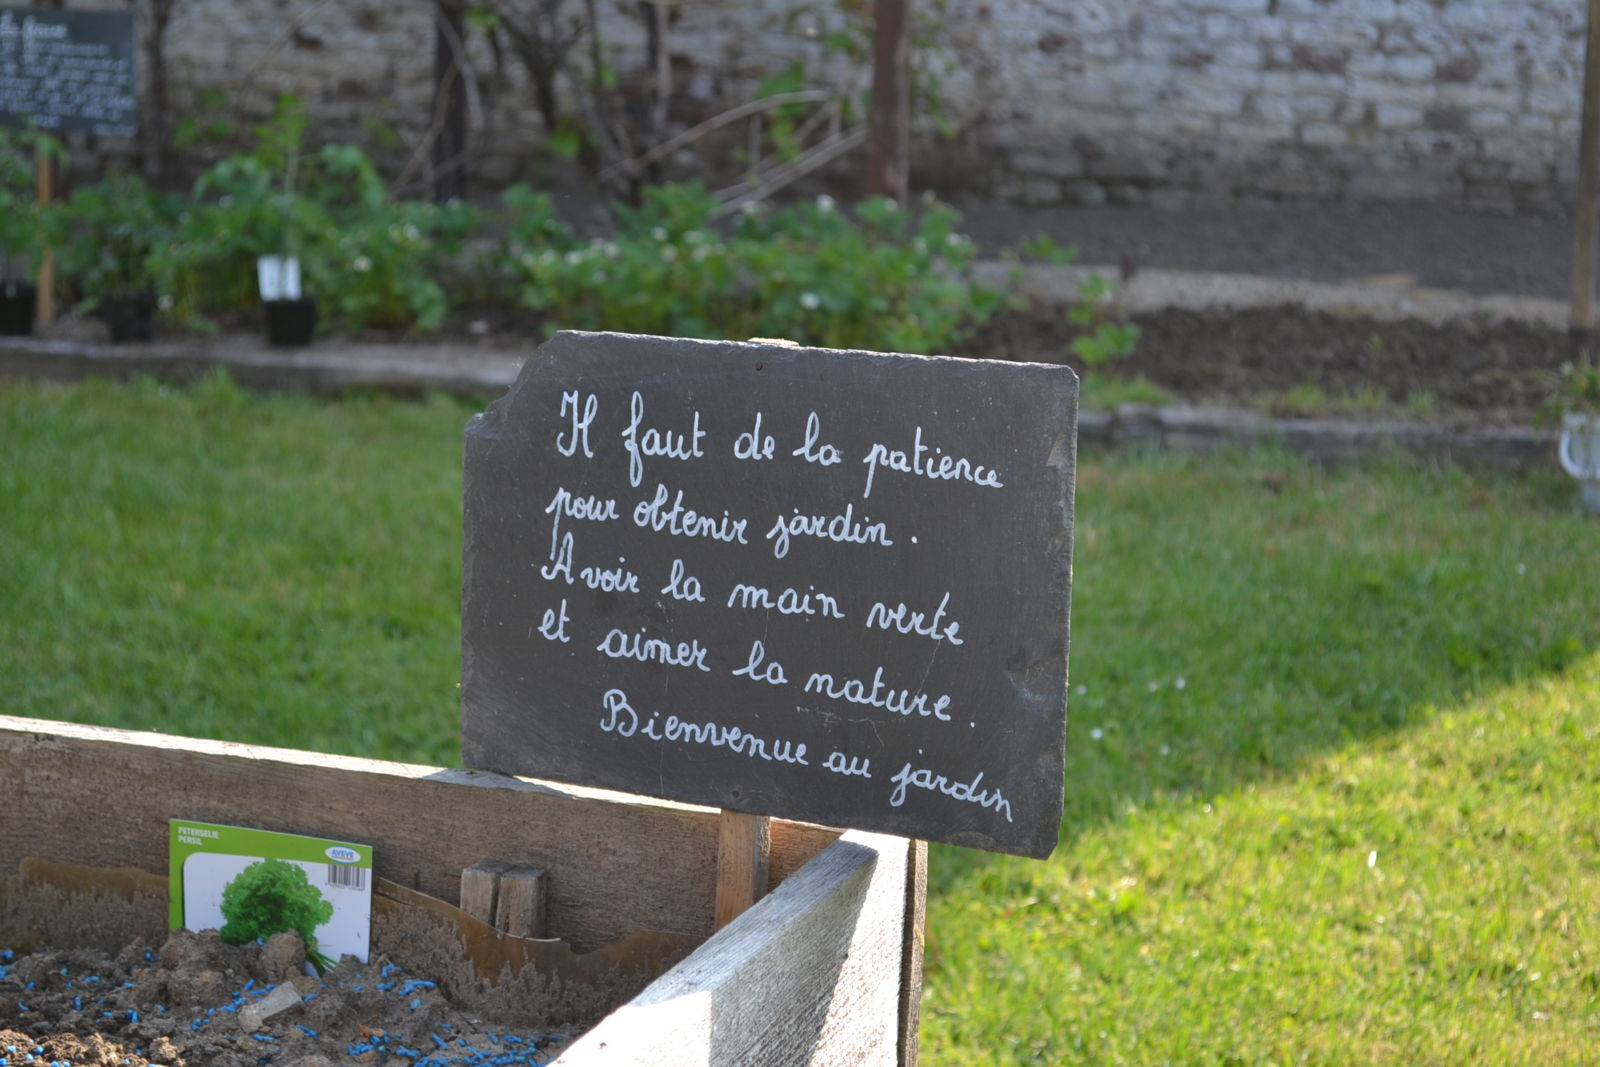 Il faut de la patience
pour obtenir jardin.
Avoir la main verte
et aimer la nature.
Bienvenue au jardin
PETERSELIE
PERSIL
AVEVE